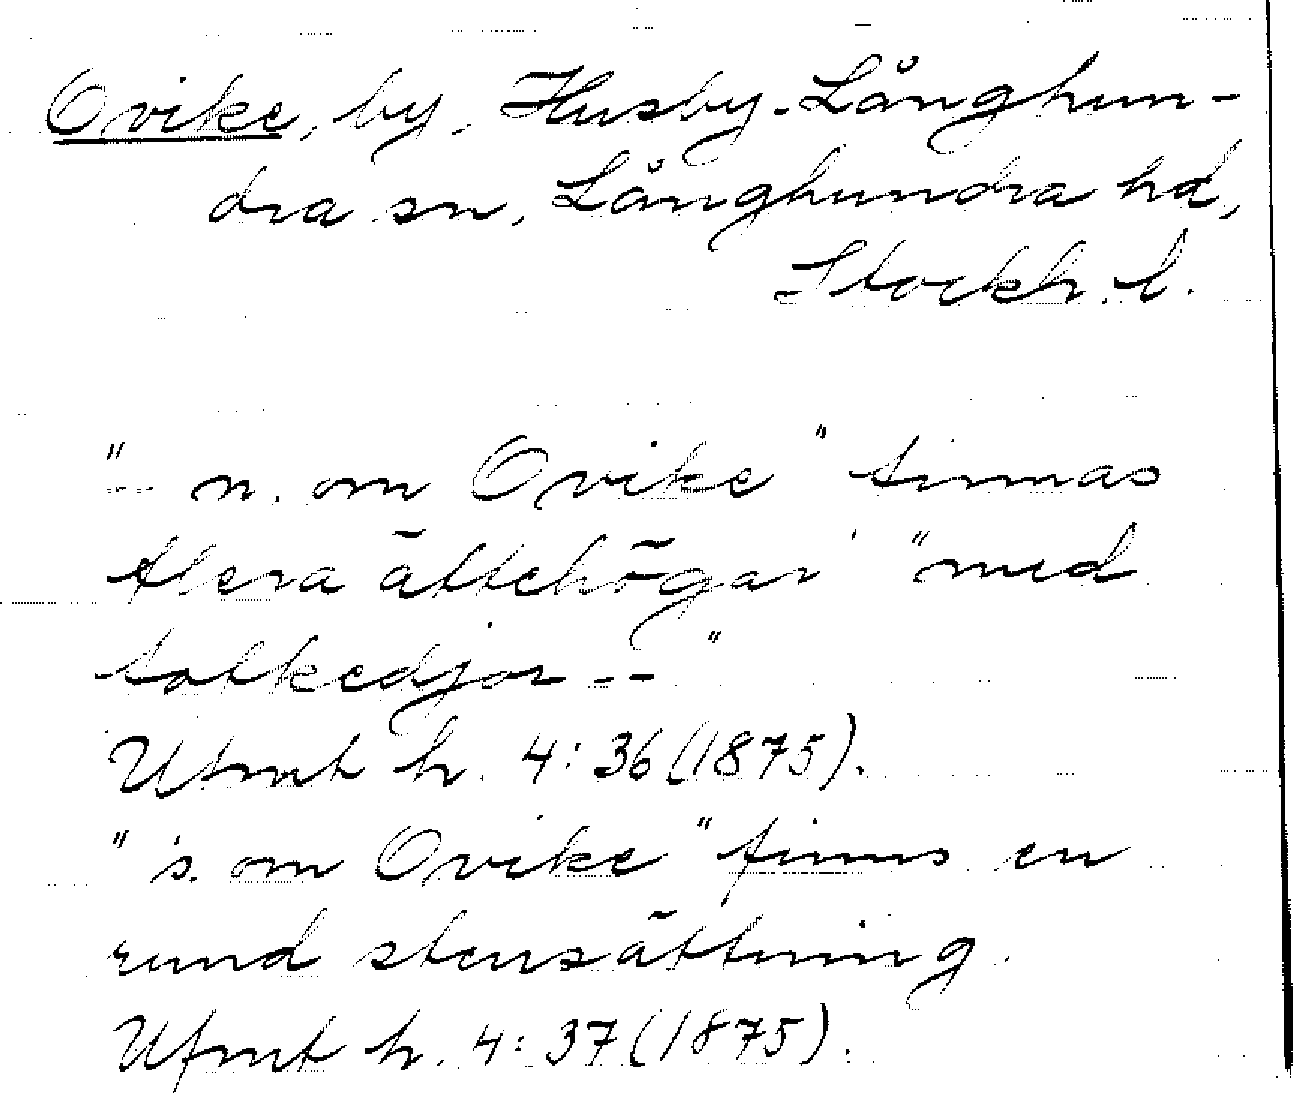 Ovike, by, Husby-Långhun-
dra sn, Långhundra hd,
Stockh. l.
"-- n. om Ovike" finnas
flera ättehögar "med
fotkedjor --"
Ufmt h. 4:36 (1875).
"s. om Ovike" finns en
rund stensättning.
Ufmt h. 4:37 (1875).